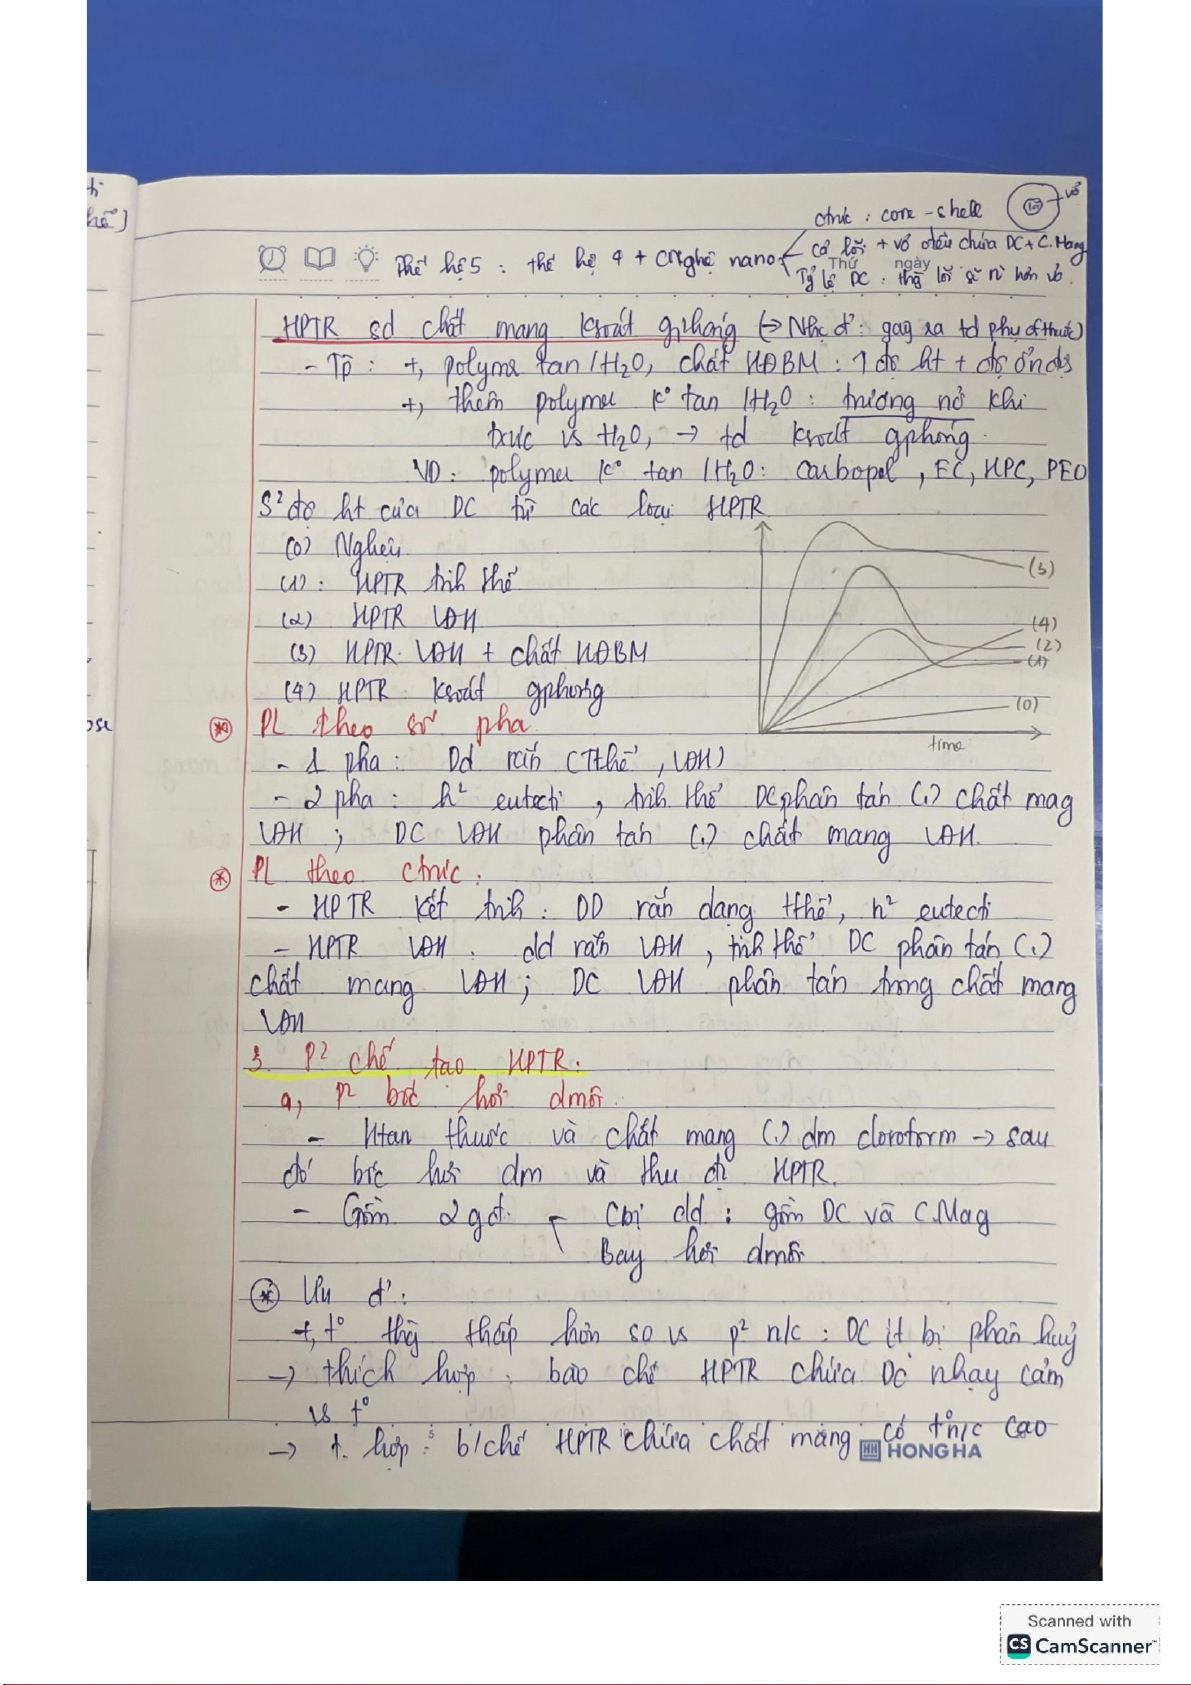 ctrúc : core - shell
vỏ
lõi
Thế hệ 5 : thế hệ 4 + cn nghệ nano
cả lõi + vỏ đều chứa DC + C. Mang
Thứ ngày
Tỷ lệ DC : thg lõi sẽ nì hơn vỏ.
HPTR sd chất mang ksoát gphóng (→ Nhc đ' : gag ra td phụ of thuốc)
- Tp : +, polyme tan / H2O, chất HĐBM : ↑ độ ht + độ ổn đs
+, thêm polymer K° tan / H2O : trương nở khi
txúc vs H2O, → td ksoát gphóng.
VD : polymer K° tan / H2O : carbopol , EC, HPC, PEO
S² độ ht của DC từ các loại HPTR
(0) Nghện
(1) : HPTR tinh thể
(2) HPTR VĐH
(3) HPTR VĐH + chất HĐBM
(4) HPTR ksoát gphong
(3)
(4)
(2)
(1)
(0)
time
PL theo số pha
- 1 pha : Dd rắn (Tthể , VĐH)
- 2 pha : h² eutecti , tinh thể DC phân tán (.) chất mag
VĐH ; DC VĐH phân tán (.) chất mang VĐH.
PL theo ctrúc :
- HPTR kết tinh : DD rắn dạng tthể, h² eutecti
- HPTR VĐH : dd rắn VĐH , tinh thể DC phân tán (.)
chất mang VĐH ; DC VĐH phân tán trong chất mang
VĐH
3. P² chế tạo HPTR :
a, p² bốc hơi dmôi
- Htan thuốc và chất mang (.) dm cloroform → sau
đó bốc hơi dm và thu đc HPTR.
- Gồm 2 gđ. Cbị dd : gồm DC và C. Mag
Bay hơi dmôi
Ưu đ' :
+, t° thg thấp hơn so vs p² n/c : DC ít bị phân huỷ
→ thích hợp : bào chế HPTR chứa DC nhạy cảm
vs t°
→ t. hợp : b/chế HPTR chứa chất mang có t°n/c cao
HONG HA
Scanned with
CS CamScanner